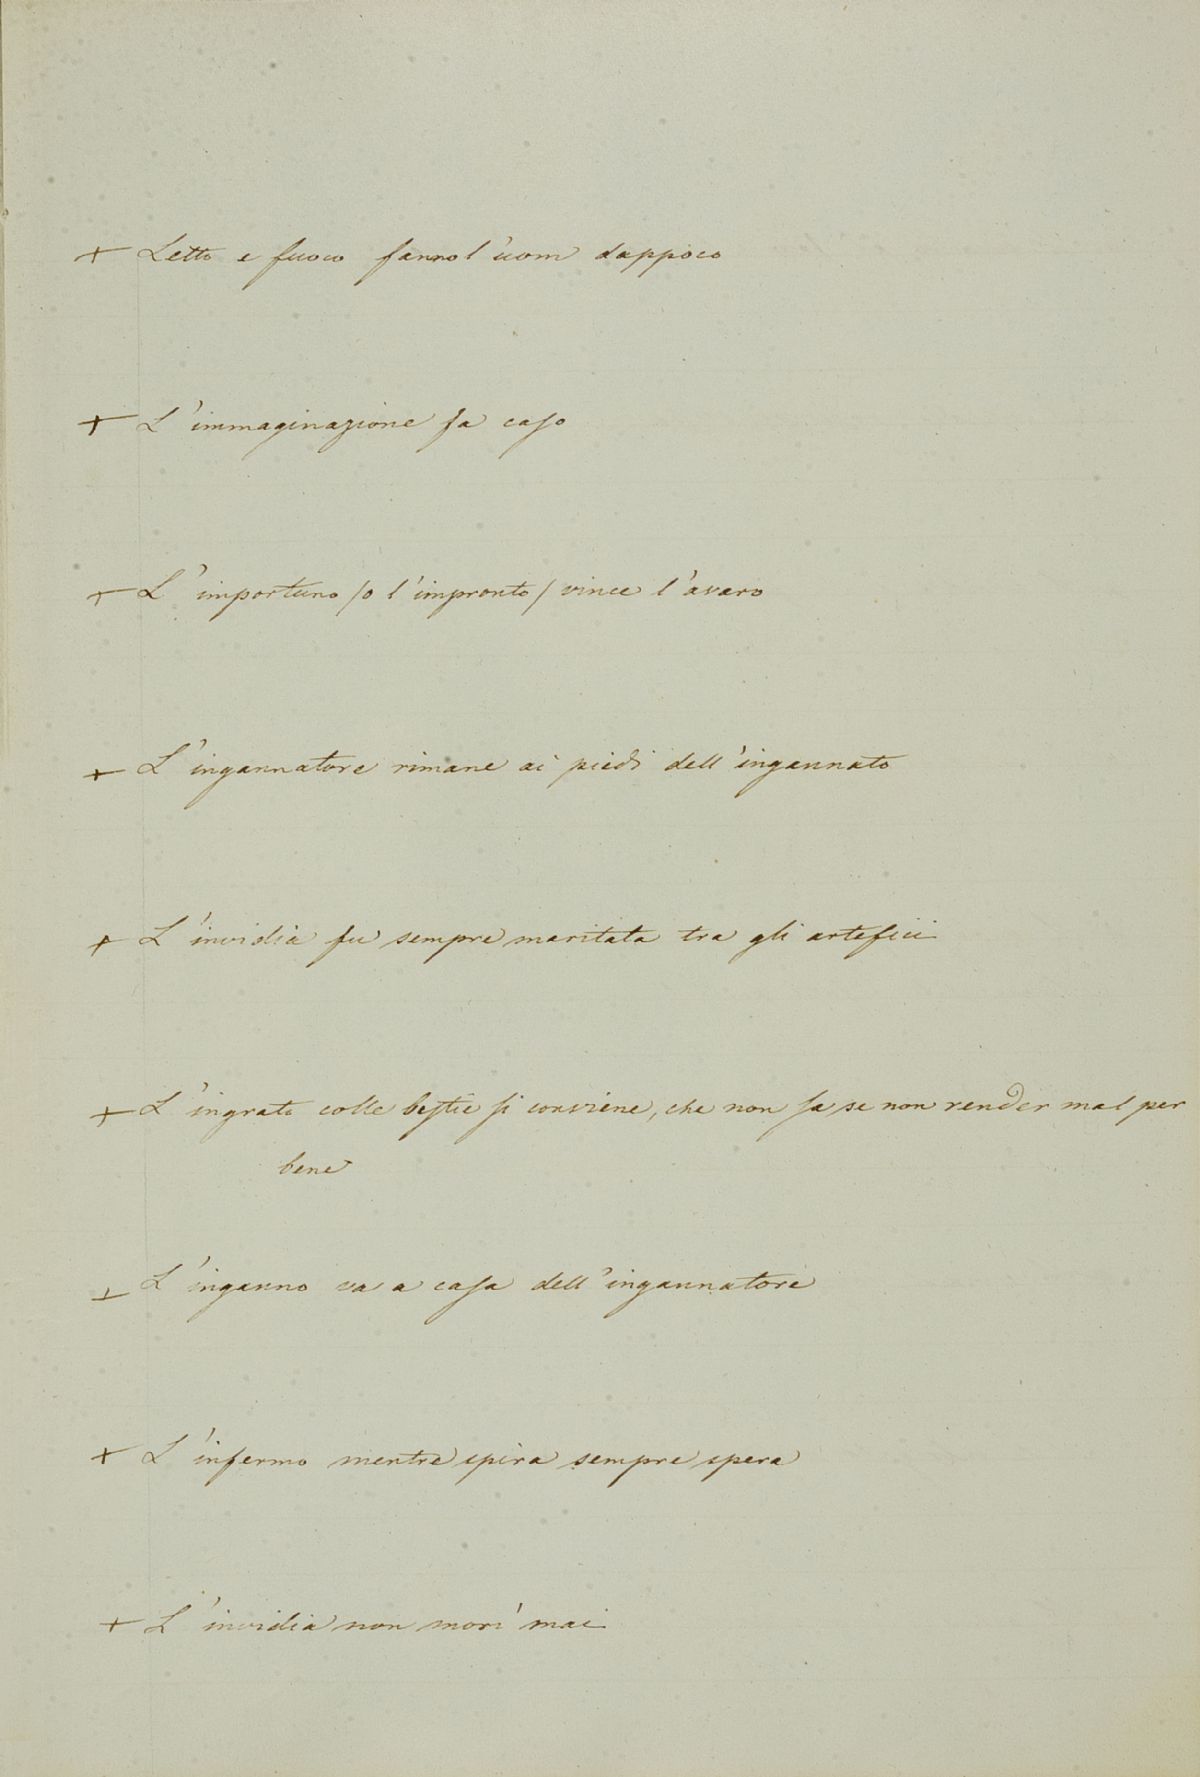 + Letto e fuoco fanno l'uom dappoco
+ L'immaginazione fa caso
+ L'importuno /o l'impronto/ vince l'avaro
+ L'ingannatore rimane ai piedi dell'ingannato
+ L'invidia fu sempre maritata tra gli artefici
+ L'ingrato colle bestie si conviene, che non sa se non render mal per
bene
+ L'inganno va a casa dell'ingannatore
+ L'infermo mentre spira sempre spera
+ L'invidia non morì mai